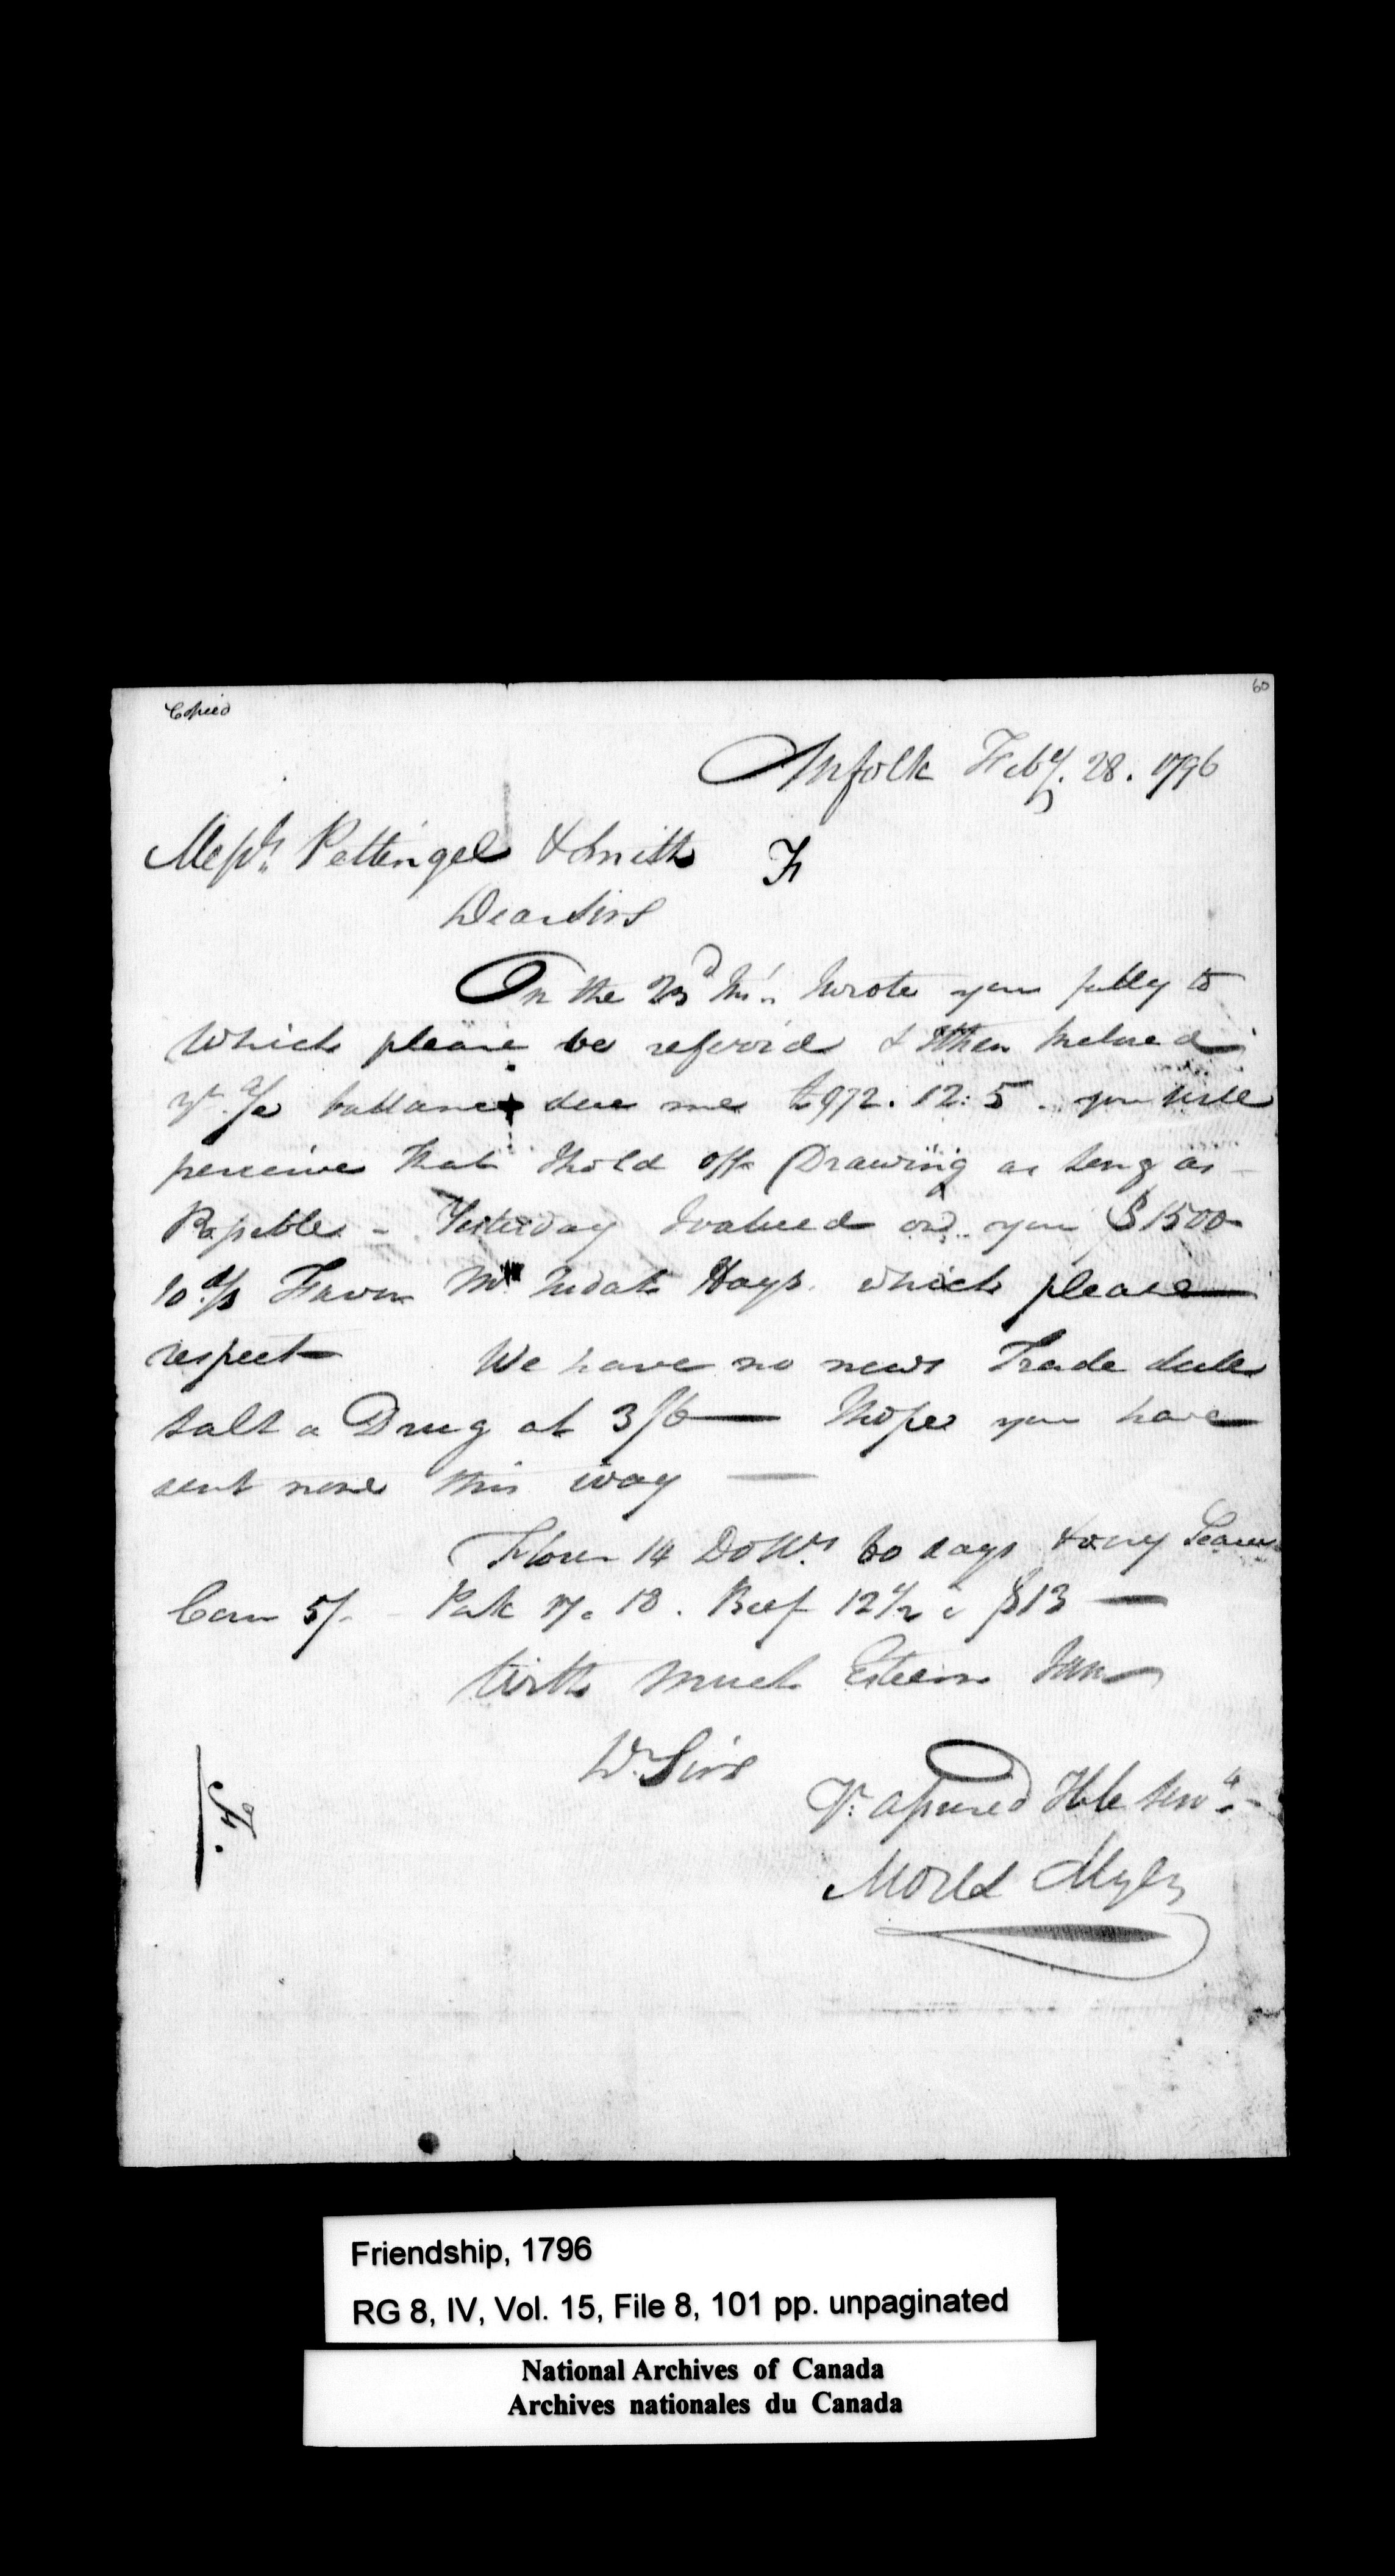 Copied
60
Norfolk Feby. 28. 1796
Messrs. Pettingel & Smith
F
Dear Sirs
On the 23d Int. I wrote you fully to
which please be referr'd & then Inclosed
yr. a/c ballance due me £972.12:5. you will
perceive that I hold off Drawing as long as
Possible - Yesterday I valued on you $1500
10 d/s Favor Mr. Judah Hays. which please
respect We have no news Trade dull
salt a Drug at 3/6 — I hope you have
sent none this way —
Flour 14 Dolls. 60 days & very Scarce
Corn 5/. Pork 17 a 18. Beef 12 1/2 a $13 —
With much Esteem I am
Dr. Sirs
Yr. assured Hble Servt.
Moses Myers
F.
Friendship, 1796
RG 8, IV, Vol. 15, File 8, 101 pp. unpaginated
National Archives of Canada
Archives nationales du Canada